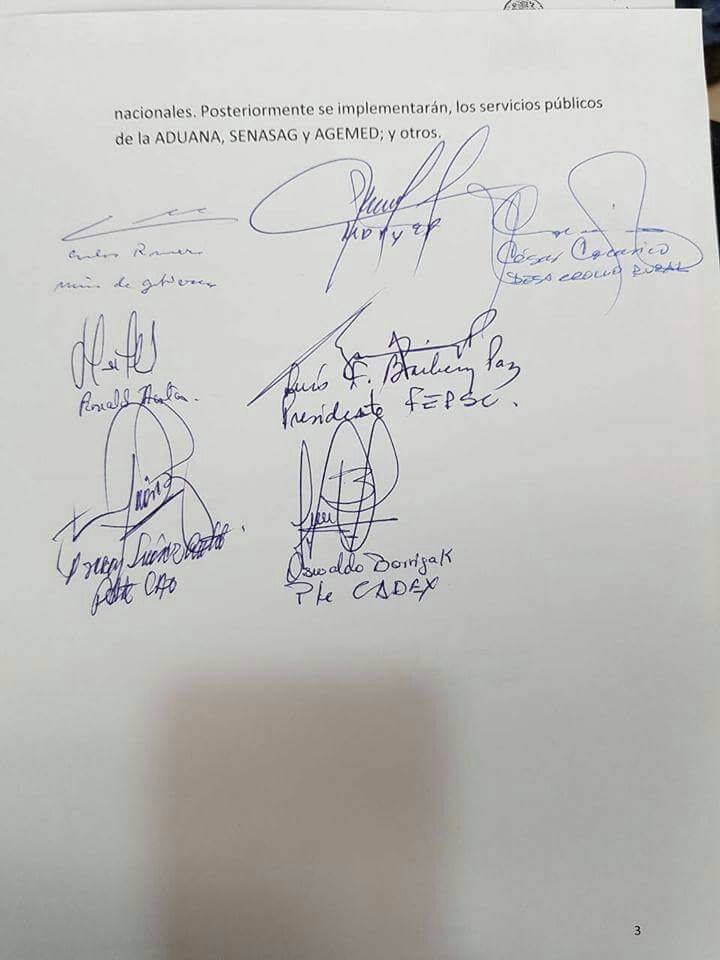 nacionales. Posteriormente se implementarán, los servicios públicos
de la ADUANA, SENASAG y AGEMED; y otros.
MDPyEP
Carlos Romero
César Cocarico
DESARROLLO RURAL
Ronald
Luis F. Barbery Paz
Presidente FEPSC.
Pdte CAO
Oswaldo Barriga K
Pte CADEX
3